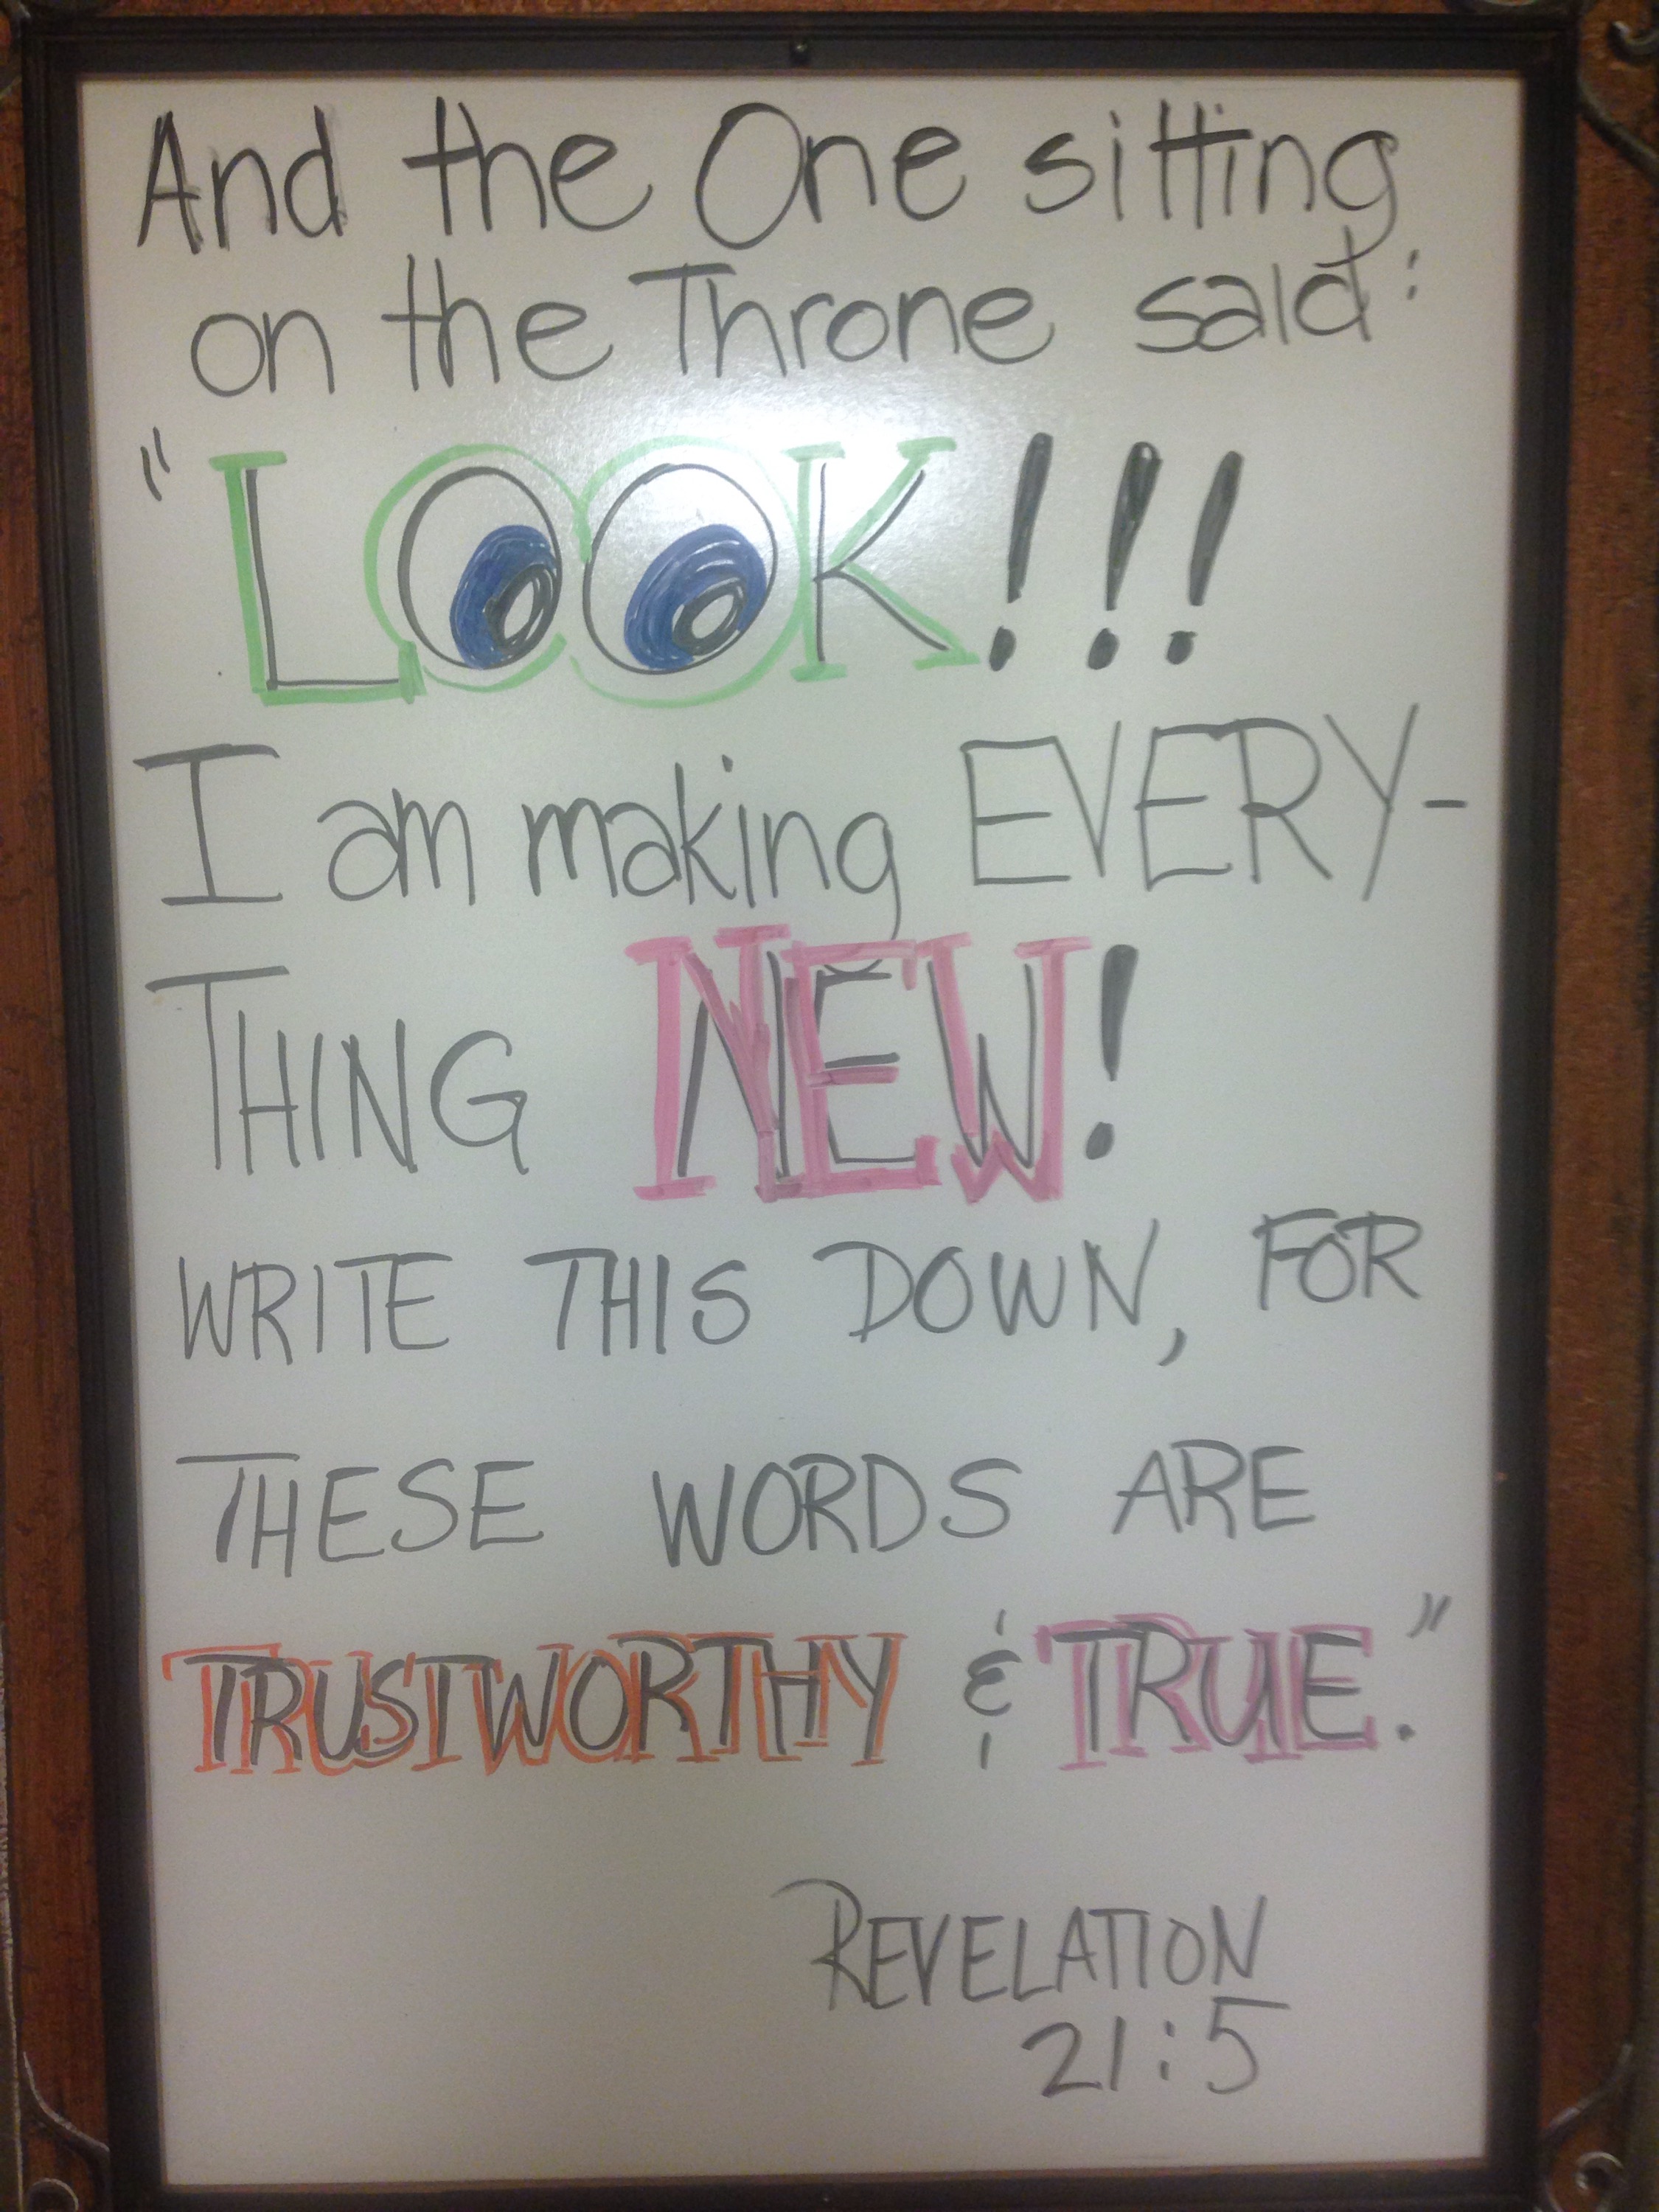 And the One sitting
on the Throne said:
"LOOK!!!
I am making EVERY-
THING NEW!
WRITE THIS DOWN, FOR
THESE WORDS ARE
TRUSTWORTHY & TRUE."
REVELATION
21:5